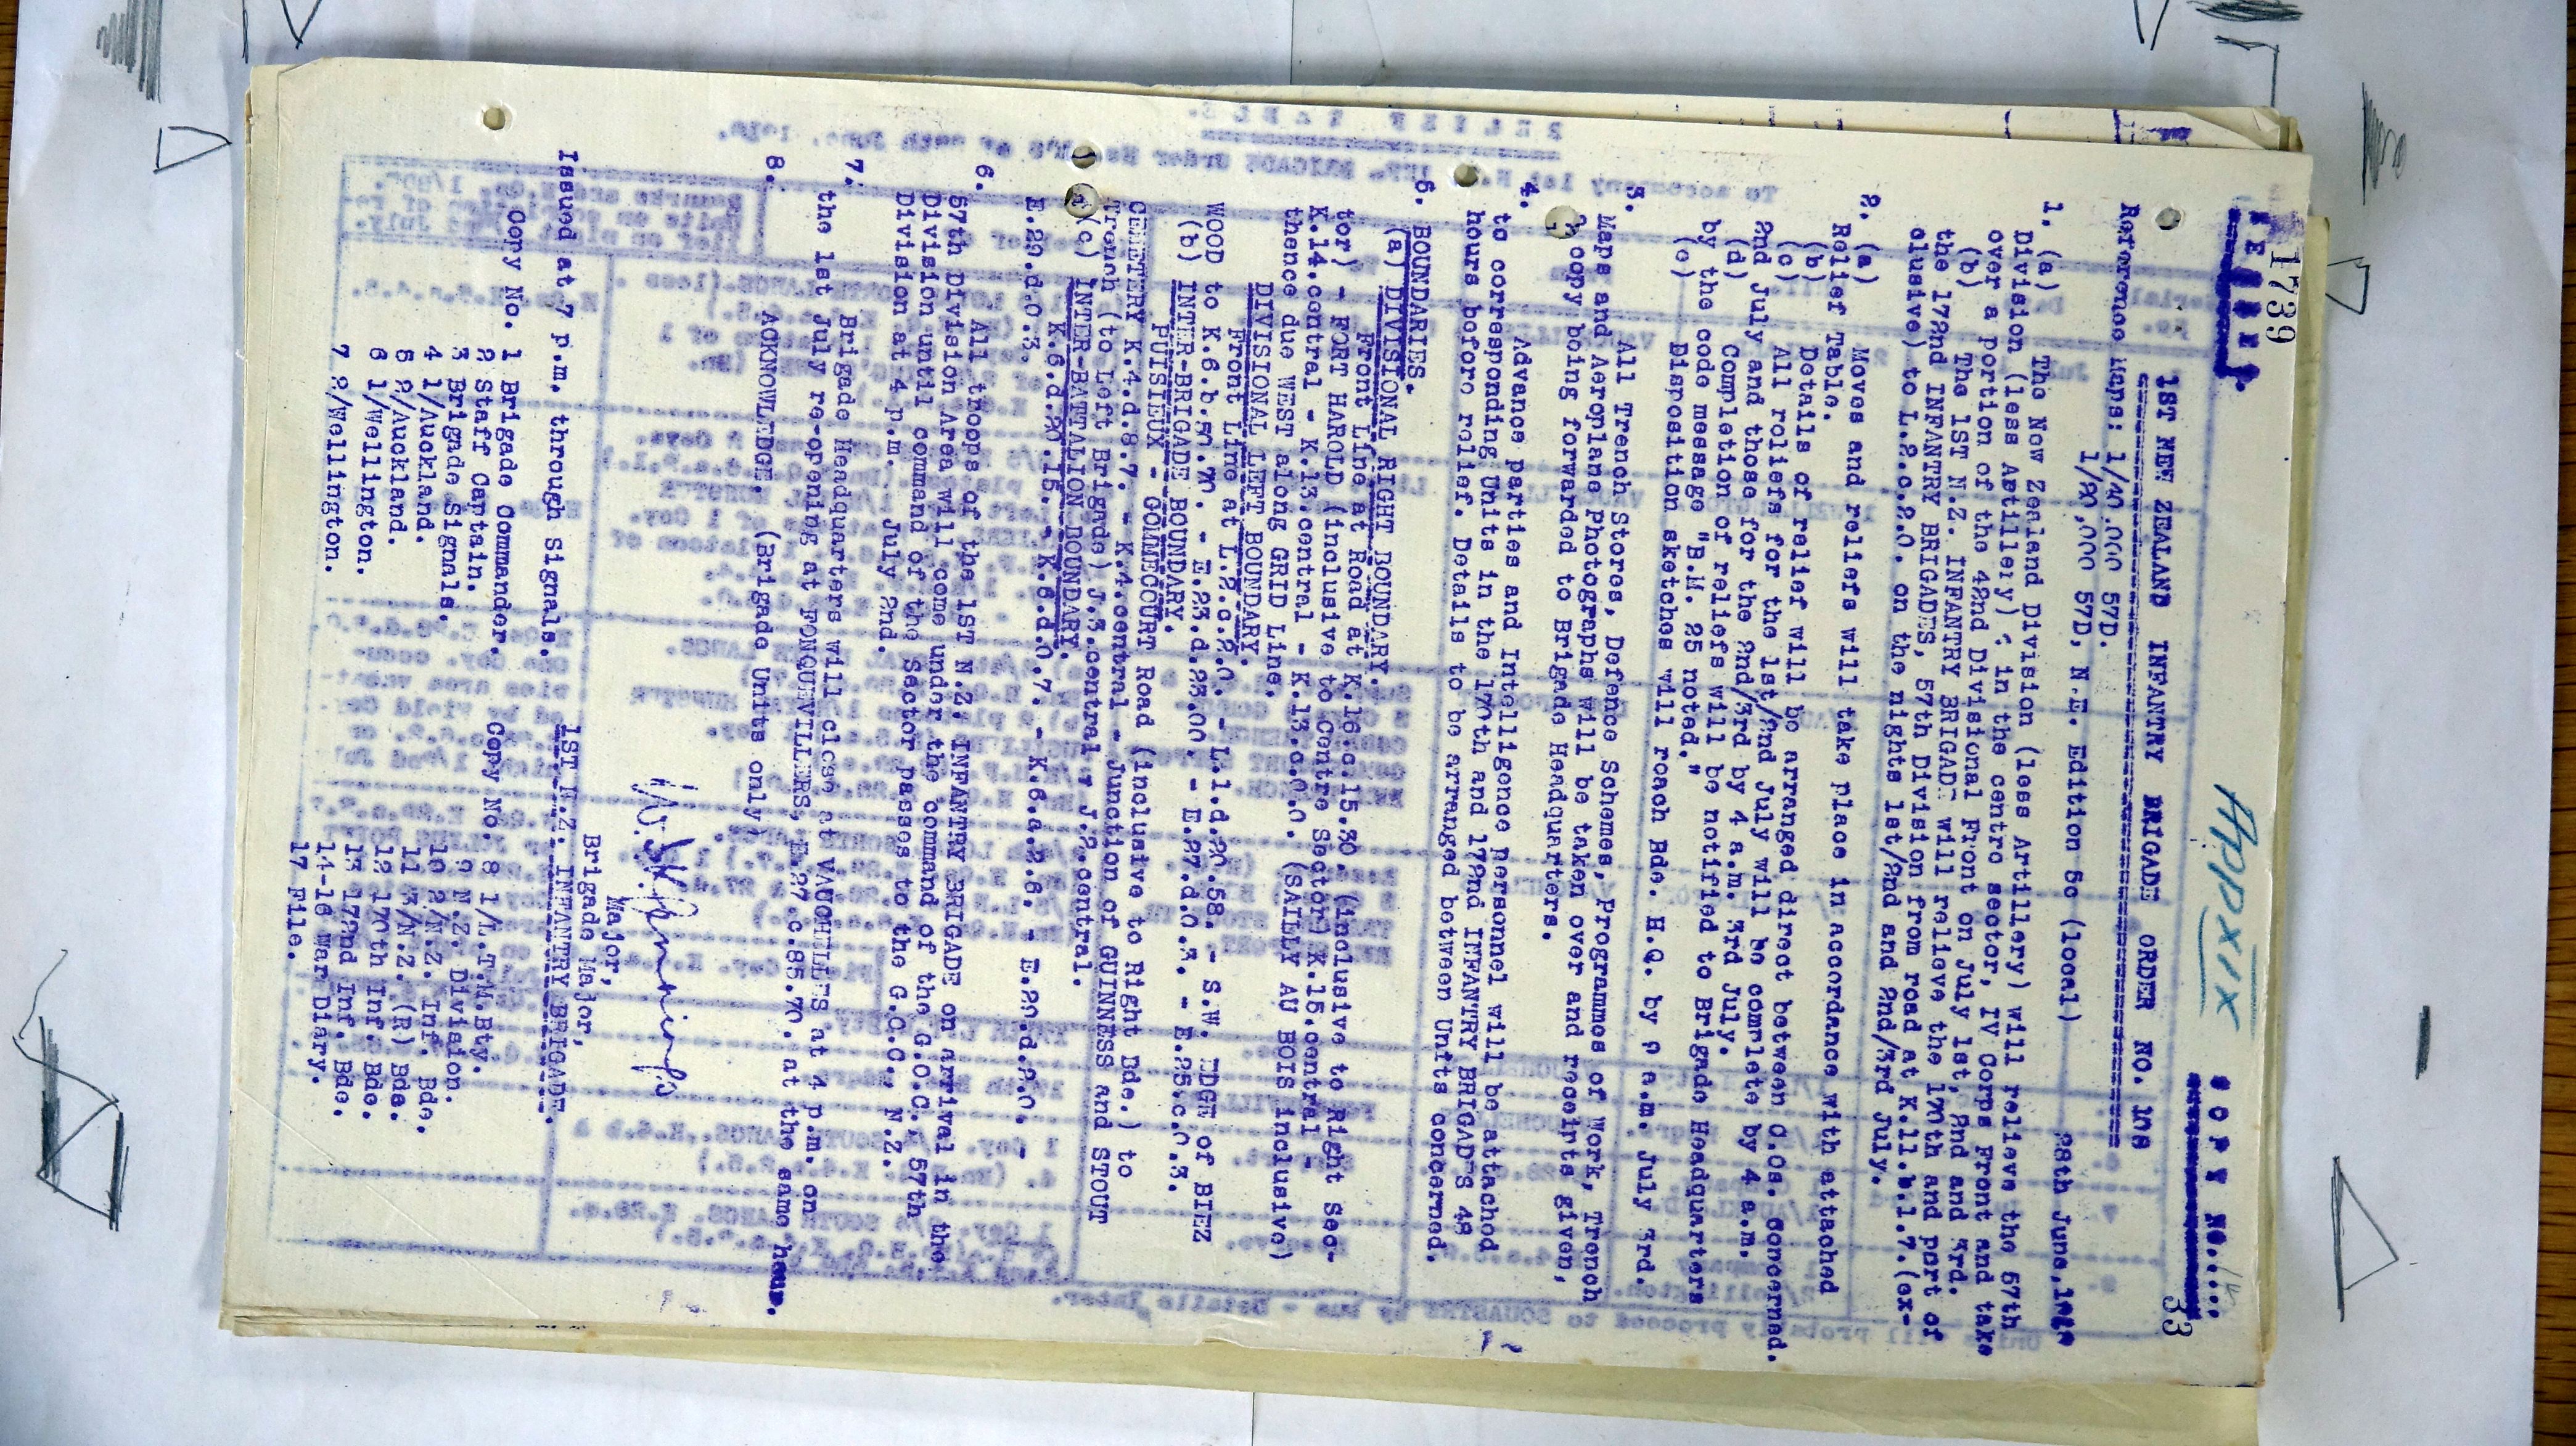 1739
SECRET.
App XIX
COPY NO.....
33
1ST NEW ZEALAND INFANTRY BRIGADE ORDER NO. 108
Reference Maps: 1/40,000 57D.
1/20,000 57D, N.E. Edition 5c (local)
28th June, 1918
1. (a) The New Zealand Division (less Artillery) will relieve the 57th
Division (less Artillery) in the centre sector, IV Corps Front and take
over a portion of the 42nd Divisional Front on July 1st, 2nd and 3rd.
(b) The 1ST N.Z. INFANTRY BRIGADE will relieve the 170th and part of
the 172nd INFANTRY BRIGADES, 57th Division from road at K.11.b.1.7.(ex-
clusive) to L.2.c.2.0. on the nights 1st/2nd and 2nd/3rd July.
2. (a) Moves and reliefs will take place in accordance with attached
Relief Table.
(b) Details of relief will be arranged direct between C.Os. concerned.
(c) All reliefs for the 1st/2nd July will be complete by 4 a.m.
2nd July and those for the 2nd/3rd by 4 a.m. 3rd July.
(d) Completion of reliefs will be notified to Brigade Headquarters
by the code message "B.M. 25 noted."
(e) Disposition sketches will reach Bde. H.Q. by 9 a.m. July 3rd.
3. All Trench Stores, Defence Schemes, Programmes of Work, Trench
Maps and Aeroplane Photographs will be taken over and receipts given,
a copy being forwarded to Brigade Headquarters.
4. Advance parties and Intelligence Personnel will be attached
to corresponding Units in the 170th and 172nd INFANTRY BRIGADES 48
hours before relief. Details to be arranged between Units concerned.
5. BOUNDARIES.
(a) DIVISIONAL RIGHT BOUNDARY.
Front Line at Road at K.16.c.15.30 (inclusive to Right Sec-
tor) - FORT HAROLD (inclusive to Centre Sector) K.15.central -
K.14.central - K.13.central - K.13.c.0.0. (SAILLY AU BOIS inclusive)
thence due WEST along GRID Line.
DIVISIONAL LEFT BOUNDARY.
Front Line at L.2.c.2.0. - L.1.d.20.58. - S.W. EDGE of BIEZ
WOOD to K.6.b.50.70. - E.23.d.23.00. - E.27.d.0.3. - E.25.c.0.3.
(b) INTER-BRIGADE BOUNDARY.
PUISIEUX - GOMMECOURT Road (inclusive to Right Bde.) to
CEMETERY K.4.d.8.7. - K.4.central - Junction of GUINNESS and STOUT
Trench (to Left Brigade) J.3.central - J.2.central.
(c) INTER-BATTALION BOUNDARY.
K.6.d.20.15. - K.6.d.0.7. - K.6.a.2.8. - E.29.d.2.0. -
E.29.d.0.3.
6. All troops of the 1ST N.Z. INFANTRY BRIGADE on arrival in the
57th Division Area will come under the command of the G.O.C. 57th
Division until command of the Sector passes to the G.O.C., N.Z.
Division at 4 p.m. July 2nd.
7. Brigade Headquarters will close at VAUCHELLES at 4 p.m. on
the 1st July re-opening at FONQUEVILLERS, E.27.c.85.70. at the same hour.
8. ACKNOWLEDGE. (Brigade Units only)
Major,
Brigade Major,
1ST N.Z. INFANTRY BRIGADE.
Issued at 7 p.m. through Signals.
Copy No. 1 Brigade Commander. Copy No. 8 1/L.T.M.Bty.
2 Staff Captain. 9 N.Z. Division.
3 Brigade Signals. 10 2/N.Z. Inf. Bde.
4 1/Auckland. 11 3/N.Z. (R) Bde.
5 2/Auckland. 12 170th Inf. Bde.
6 1/Wellington. 13 172nd Inf. Bde.
7 2/Wellington. 14-16 War Diary.
17 File.